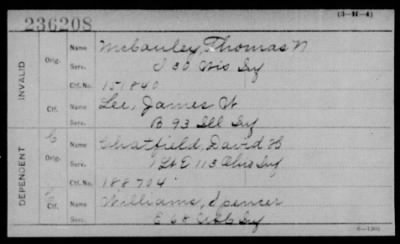 (3-H-4)
236208
INVALID
Orig. Name McCauley, Thomas N
Serv. I 30 Wis Inf
Ctf. No. 151840
Ctf. Name Lee, James W
B 93 Ill Inf
DEPENDENT
Orig. Name Chatfield, David B
Serv. 1 Lt E 113 Ohio Inf
Ctf. No. 188704
Ctf. Name Williams, Spencer
Serv. E 68 Inf
6-1301